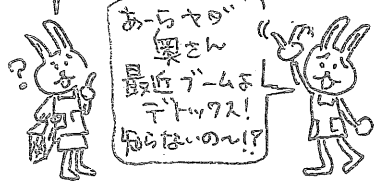 あーらヤダ
奥さん
最近ブームよ
デトックス!
知らないの〜!?
?